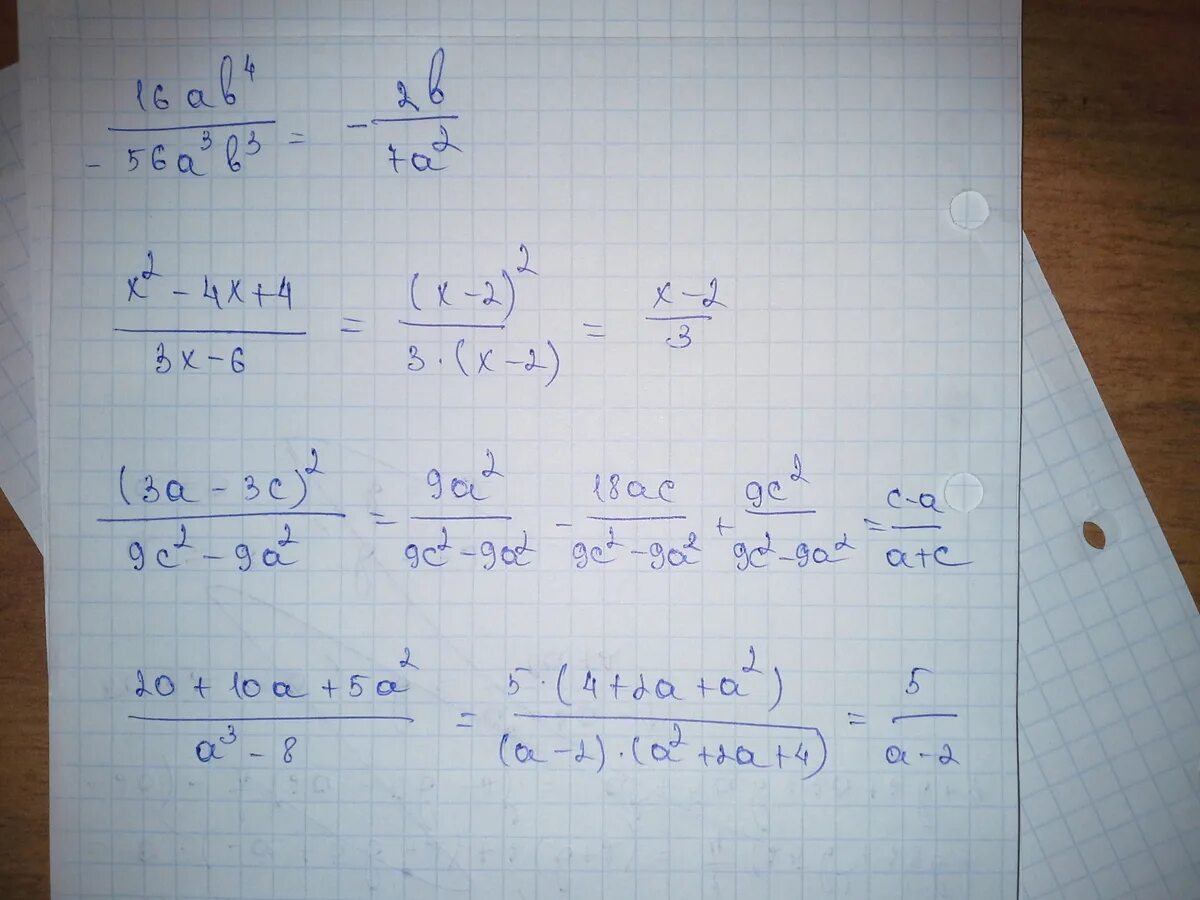 16ab⁴ / -56a³b³ = - 2b / 7a²
x² - 4x + 4 / 3x - 6 = (x - 2)² / 3·(x - 2) = x - 2 / 3
(3a - 3c)² / 9c² - 9a² = 9a² / 9c² - 9a² - 18ac / 9c² - 9a² + 9c² / 9c² - 9a² = c - a / a + c
20 + 10a + 5a² / a³ - 8 = 5·(4 + 2a + a²) / (a - 2)·(a² + 2a + 4) = 5 / a - 2